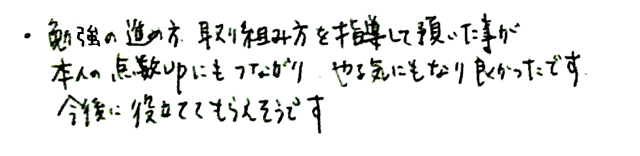 ・勉強の進め方 取り組み方を指導して頂いた事が
本人の点数upにもつながり やる気にもなり良かったです.
今後に役立ててもらえそうです